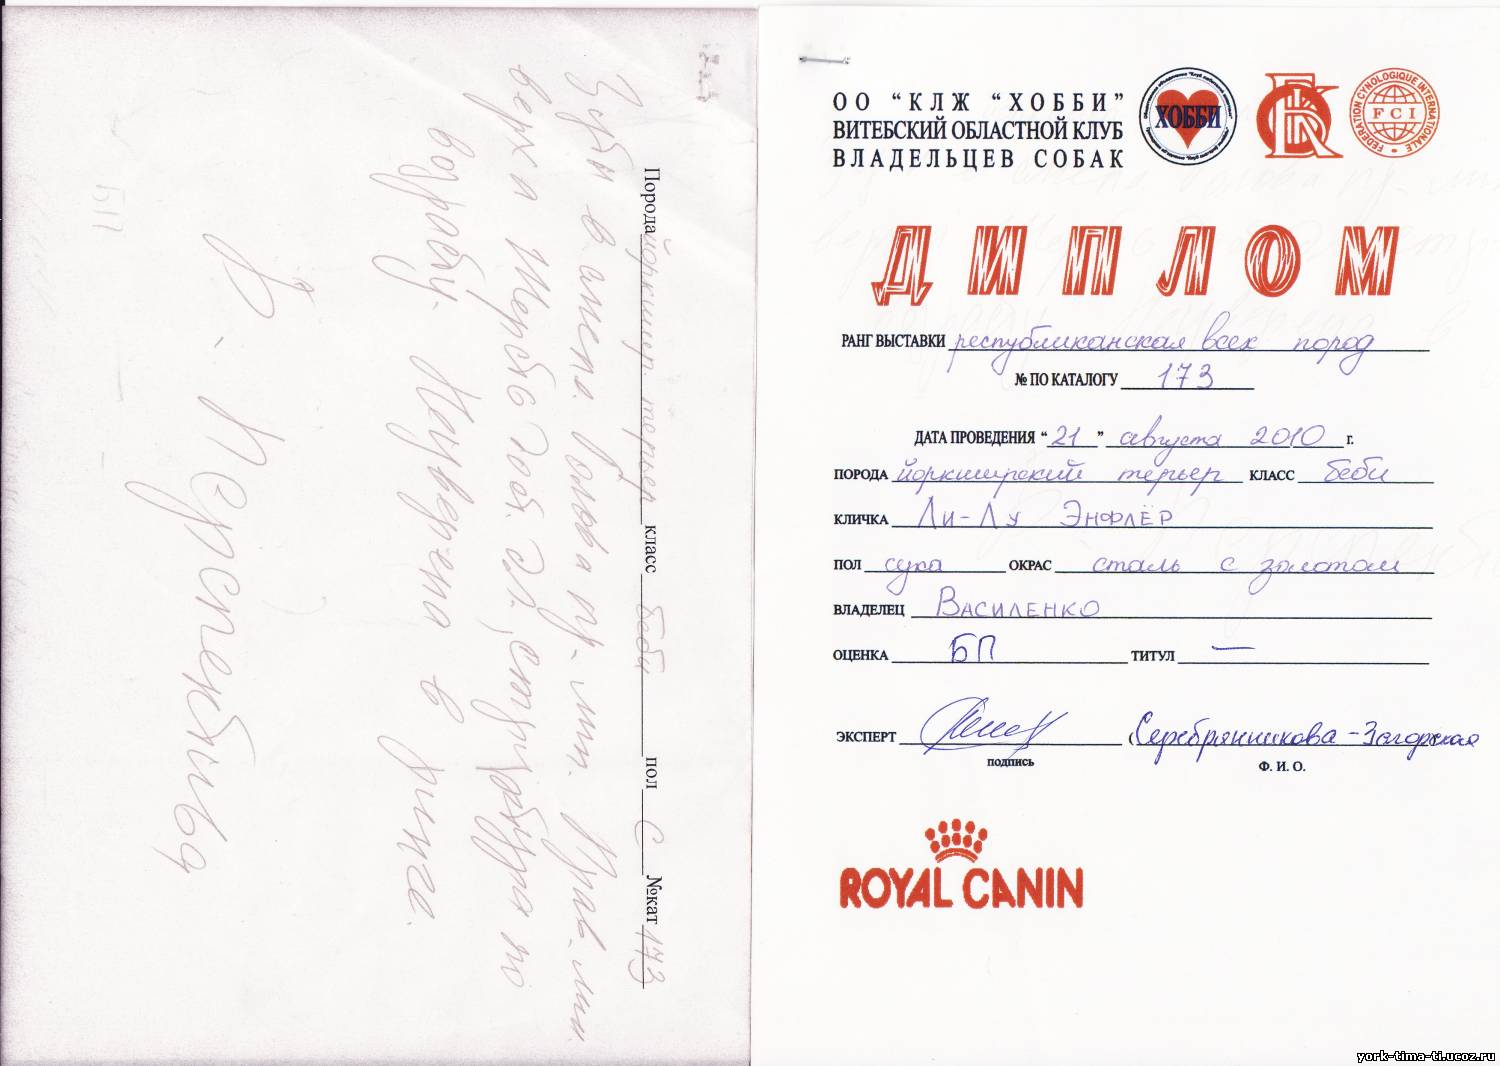 Порода йоркшир. терьер класс беби пол С №кат 173
Зубы в смене. Голова пр. тип. Прав. лин.
верха
возрасту. Неуверена в ринге.
Перспективна
БП
ОО “КЛЖ “ХОББИ”
ВИТЕБСКИЙ ОБЛАСТНОЙ КЛУБ
ВЛАДЕЛЬЦЕВ СОБАК
ХОББИ
FEDERATION CYNOLOGIQUE INTERNATIONALE
FCI
ДИПЛОМ
РАНГ ВЫСТАВКИ республиканская всех пород
№ ПО КАТАЛОГУ 173
ДАТА ПРОВЕДЕНИЯ “21” августа 2010 г.
ПОРОДА йоркширский терьер КЛАСС беби
КЛИЧКА Ли-Лу Энфлёр
ПОЛ сука ОКРАС сталь с золотом
ВЛАДЕЛЕЦ Василенко
ОЦЕНКА БП ТИТУЛ —
ЭКСПЕРТ (Серебрянникова-Загорская
подпись Ф. И. О.
ROYAL CANIN
york-tima-ti.ucoz.ru